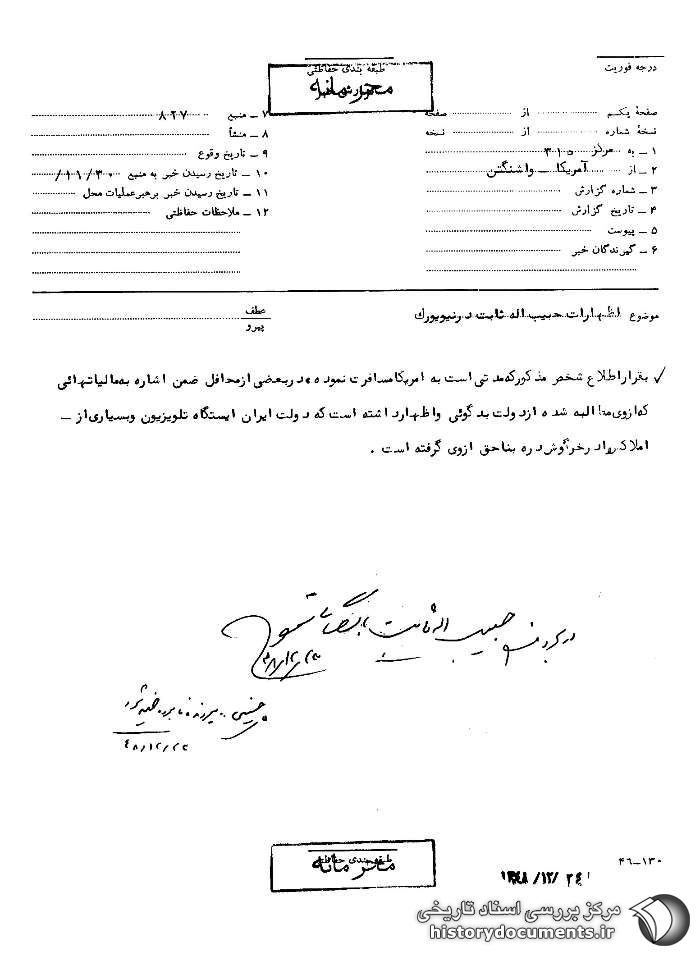 درجه فوریت
طبقه بندی حفاظتی
محرمانه
صفحهٔ یکم از صفحه
نسخهٔ شماره از نسخه
۱ – به مرکز ۳۱۵
۲ – از آمریکا – واشنگتن
۳ – شماره گزارش
۴ – تاریخ گزارش
۵ – پیوست
۶ – گیرندگان خبر
۷ – منبع ۸۲۷
۸ – منشأ
۹ – تاریخ وقوع
۱۰ – تاریخ رسیدن خبر به منبع ۱۱/۳۰/
۱۱ – تاریخ رسیدن خبر برهبر عملیات محل
۱۲ – ملاحظات حفاظتی
موضوع اظهارات حبیب اله ثابت در نیویورك
عطف
پیرو
بقرار اطلاع شخص مذکور که مدتی است به امریکا مسافرت نموده در بعضی از محافل ضمن اشاره به مالیاتهائی
که از وی مطالبه شده از دولت بدگوئی و اظهار داشته است که دولت ایران ایستگاه تلویزیون و بسیاری از –
املاک را در خرگوش دره بناحق از وی گرفته است .
حبیب اله ثابت
۴۸/۱۲/۲۳
۴۸/۱۲/۲۳
طبقه بندی حفاظتی
محرمانه
۴۶–۱۳۰
۱۳۴۸/۱۲/۲۴
مرکز بررسی اسناد تاریخی
historydocuments.ir